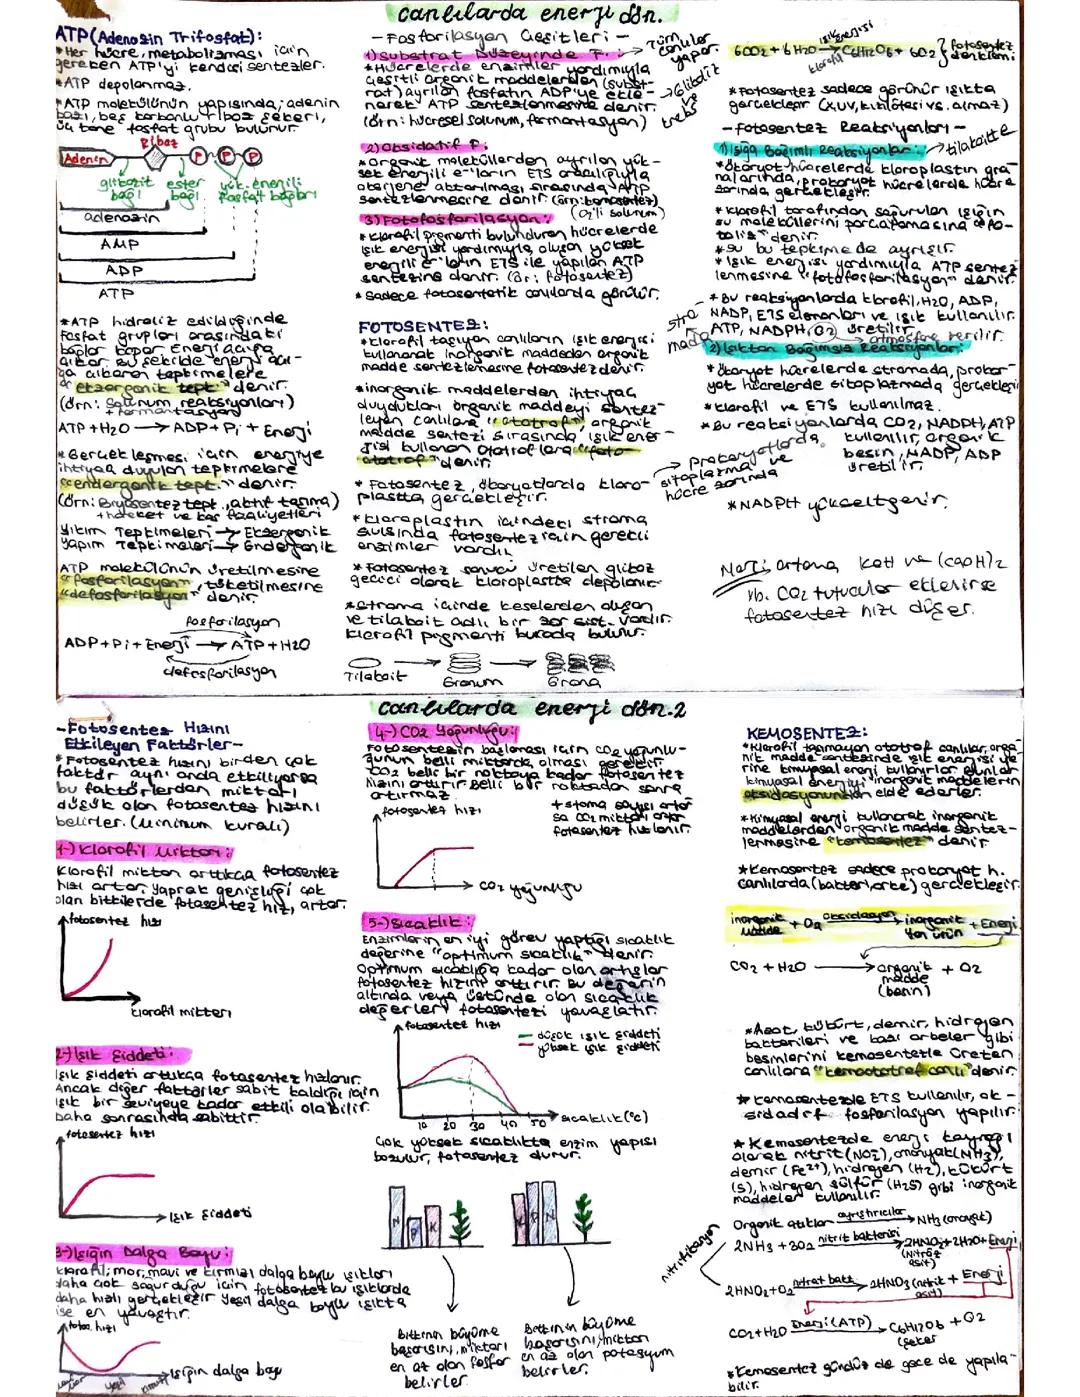 canlılarda enerji dön.
ATP(Adenozin Trifosfat):
*Her hücre, metabolizması için
gereken ATP'yi kendisi sentezler.
*ATP depolanmaz.
*ATP molekülünün yapısında; adenin
bazı, beş karbonlu riboz şekeri,
üç tane fosfat grubu bulunur.
Riboz
Adenin
P P P
glikozit bağı
ester bağı
yük. enerjili fosfat bağları
adenozin
AMP
ADP
ATP
*ATP hidroliz edildiğinde
fosfat grupları arasındaki
bağlar kopar Enerji açığa
çıkar. Bu şekilde enerji açı-
ğa çıkaran tepkimelere
"ekzergonik tepk." denir.
(örn: Solunum reaksiyonları)
+ fermantasyon
ATP+H2O → ADP+Pi + Enerji
*Gerçekleşmesi için enerjiye
ihtiyaç duyulan tepkimelere
"endergonik tepk." denir.
(örn: Biyosentez tepk., aktif taşıma)
+hareket ve kas faaliyetleri
Yıkım Tepkimeleri → Ekzergonik
Yapım Tepkimeleri → Endergonik
ATP molekülünün üretilmesine
"fosforilasyon", tüketilmesine
"defosforilasyon" denir.
fosforilasyon
ADP+Pi+Enerji → ATP+H2O
defosforilasyon
-Fosforilasyon Çeşitleri-
1) Substrat Düzeyinde F.:
Tüm canlılar yapar.
*Hücrelerde enzimler yardımıyla
çeşitli organik maddelerden (subst-
rat) ayrılan fosfatın ADP'ye ekle-
nerek ATP sentezlenmesine denir.
(örn: hücresel solunum, fermantasyon)
→Glikoliz ve krebs
2) Oksidatif F.:
*Organik moleküllerden ayrılan yük-
sek enerjili e⁻ların ETS aracılığıyla
oksijene aktarılması sırasında ATP
sentezlenmesine denir. (örn: kemosentez)
(O2'li solunum)
3) Fotofosforilasyon:
*Klorofil pigmenti bulunduran hücrelerde
ışık enerjisi yardımıyla oluşan yüksek
enerjili e⁻ların ETS ile yapılan ATP
sentezine denir. (ör: fotosentez)
*Sadece fotosentetik canlılarda görülür.
FOTOSENTEZ:
*Klorofil taşıyan canlıların ışık enerjisi
kullanarak inorganik maddeden organik
madde sentezlemesine fotosentez denir.
*inorganik maddelerden ihtiyaç
duydukları organik maddeyi sentez-
leyen canlılara "ototrof", organik
madde sentezi sırasında, ışık ener-
jisi kullanan ototroflara "foto-
ototrof" denir.
*Fotosentez, ökaryotlarda kloro-
plastta gerçekleşir.
→ prokaryotlarda
sitoplazma ve
hücre zarında
*Kloroplastın içindeki stroma
sıvısında fotosentez için gerekli
enzimler vardır.
*Fotosentez sonucu üretilen glikoz
geçici olarak kloroplastta depolanır.
*Stroma içinde keselerden oluşan
ve tilakoit adlı bir zar sist. vardır.
Klorofil pigmenti burada bulunur.
Tilakoit → Granum → Grana
6CO2+6H2O ışık enerjisi klorofil C6H12O6+ 6O2 } fotosentez denklemi
*Fotosentez sadece görünür ışıkta
gerçekleşir (X,UV,kızılötesi vs. olmaz)
-Fotosentez Reaksiyonları-
1) Işığa Bağımlı Reaksiyonlar: → tilakoitte
*Ökaryot hücrelerde kloroplastın gra-
nalarında, prokaryot hücrelerde hücre
zarında gerçekleşir.
*Klorofil tarafından soğurulan ışığın
su moleküllerini parçalamasına "foto-
liz" denir.
*Su bu tepkimede ayrışır.
*Işık enerjisi yardımıyla ATP sentez-
lenmesine "fotofosforilasyon" denir.
*Bu reaksiyonlarda klorofil, H2O, ADP,
NADP, ETS elemanları ve ışık kullanılır.
ATP, NADPH, O2 üretilir.
→ atmosfere verilir.
stromada
2) Işıktan Bağımsız Reaksiyonlar:
*Ökaryot hücrelerde stromada, prokar-
yot hücrelerde sitoplazmada gerçekleşir
*Klorofil ve ETS kullanılmaz.
*Bu reaksiyonlarda CO2, NADPH, ATP
kullanılır, organik
besin, NADP, ADP
üretilir.
*NADPH yükseltgenir.
Not: ortama KOH ve (CaOH)2
vb. CO2 tutucular eklenirse
fotosentez hızı düşer.
canlılarda enerji dön.2
-Fotosentez Hızını
Etkileyen Faktörler-
*Fotosentez hızını birden çok
faktör aynı anda etkiliyorsa
bu faktörlerden miktarı
düşük olan fotosentez hızını
belirler. (Minimum kuralı)
1-) Klorofil Miktarı:
Klorofil miktarı arttıkça fotosentez
hızı artar. Yaprak genişliği çok
olan bitkilerde fotosentez hızı artar.
fotosentez hızı
klorofil miktarı
2-) Işık Şiddeti:
Işık şiddeti arttıkça fotosentez hızlanır.
Ancak diğer faktörler sabit kaldığı için
ışık bir seviyeye kadar etkili olabilir.
Daha sonrasında sabittir.
fotosentez hızı
Işık şiddeti
3-) Işığın Dalga Boyu:
Klorofil; mor, mavi ve kırmızı dalga boylu ışıkları
daha çok soğurduğu için fotosentez bu ışıklarda
daha hızlı gerçekleşir. Yeşil dalga boylu ışıkta
ise en yavaştır.
fotos. hızı
yeşil
kırmızı
Işığın dalga boyu
4-) CO2 Yoğunluğu:
Fotosentezin başlaması için CO2 yoğunlu-
ğunun belli miktarda olması gerekir.
CO2 belli bir noktaya kadar fotosentez
hızını arttırır. Belli bir noktadan sonra
artırmaz.
fotosentez hızı
CO2 yoğunluğu
+ stoma sayısı artar
sa CO2 miktarı artar
fotosentez hızlanır.
5-) Sıcaklık:
Enzimlerin en iyi görev yaptığı sıcaklık
değerine "optimum sıcaklık" denir.
Optimum sıcaklığa kadar olan artışlar
fotosentez hızını arttırır. Bu değerin
altında veya üstünde olan sıcaklık
değerleri fotosentezi yavaşlatır.
fotosentez hızı
düşük ışık şiddeti
yüksek ışık şiddeti
10 20 30 40 50
sıcaklık(°C)
Çok yüksek sıcaklıkta enzim yapısı
bozulur, fotosentez durur.
N P K
K P N
Bitkinin büyüme
başarısını, miktarı
en az olan fosfor
belirler.
Bitkinin büyüme
başarısını, miktarı
en az olan potasyum
belirler.
KEMOSENTEZ:
*Klorofil taşımayan ototrof canlılar, orga-
nik madde sentezinde ışık enerjisi ye-
rine kimyasal enerji kullanırlar. Bunlar
kimyasal enerjiyi inorganik maddelerin
oksidasyonundan elde ederler.
*Kimyasal enerji kullanarak inorganik
maddelerden organik madde sentez-
lenmesine "kemosentez" denir.
*Kemosentez sadece prokaryot h.
canlılarda (bakteri, arke) gerçekleşir.
inorganik madde + O2 oksidasyon → inorganik yan ürün + Enerji
CO2 + H2O → organik madde (besin) + O2
*Azot, kükürt, demir, hidrojen
bakterileri ve bazı arkeler gibi
besinlerini kemosentezle üreten
canlılara "kemoototrof canlı" denir.
*Kemosentezde ETS kullanılır, ok-
sidatif fosforilasyon yapılır.
*Kemosentezde enerji kaynağı
olarak nitrit(NO2⁻), amonyak(NH3),
demir (Fe²⁺), hidrojen (H2), kükürt
(S), hidrojen sülfür (H2S) gibi inorganik
maddeler kullanılır.
Organik atıklar ayrıştırıcılar → NH3 (amonyak)
nitrifikasyon
2NH3 +3O2 nitrit bakterisi → 2HNO2+2H2O+Enerji
(Nitröz asit)
2HNO2+O2 nitrat bakt. → 2HNO3 (nitrik asit) + Enerji
CO2+H2O Enerji(ATP) → C6H12O6 + O2
(şeker
*Kemosentez gündüz de gece de yapıla-
bilir.